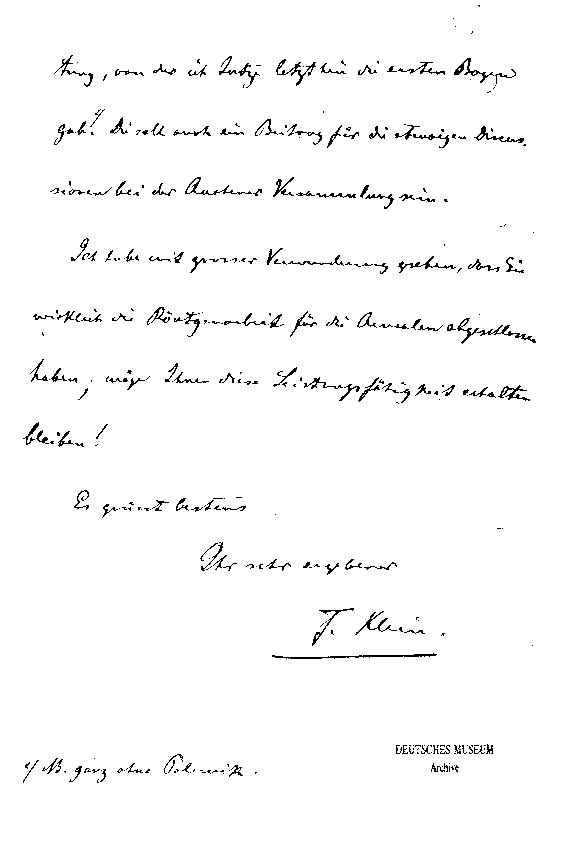 tung, von der ich Satz letzthin die ersten Bogen
gab.*) Die soll auch ein Beitrag für die etwaigen Discus-
sionen bei der Aachener Versammlung sein.
Ich habe mit grosser Verwunderung gesehen, dass Sie
wirklich die Röntgenarbeit für die Annalen abgeschlossen
haben; möge Ihnen diese Leistungsfähigkeit erhalten
bleiben!
Es grüsst bestens
Ihr sehr ergebener
F. Klein.
*) NB. ganz ohne Polemik.
DEUTSCHES MUSEUM
Archive